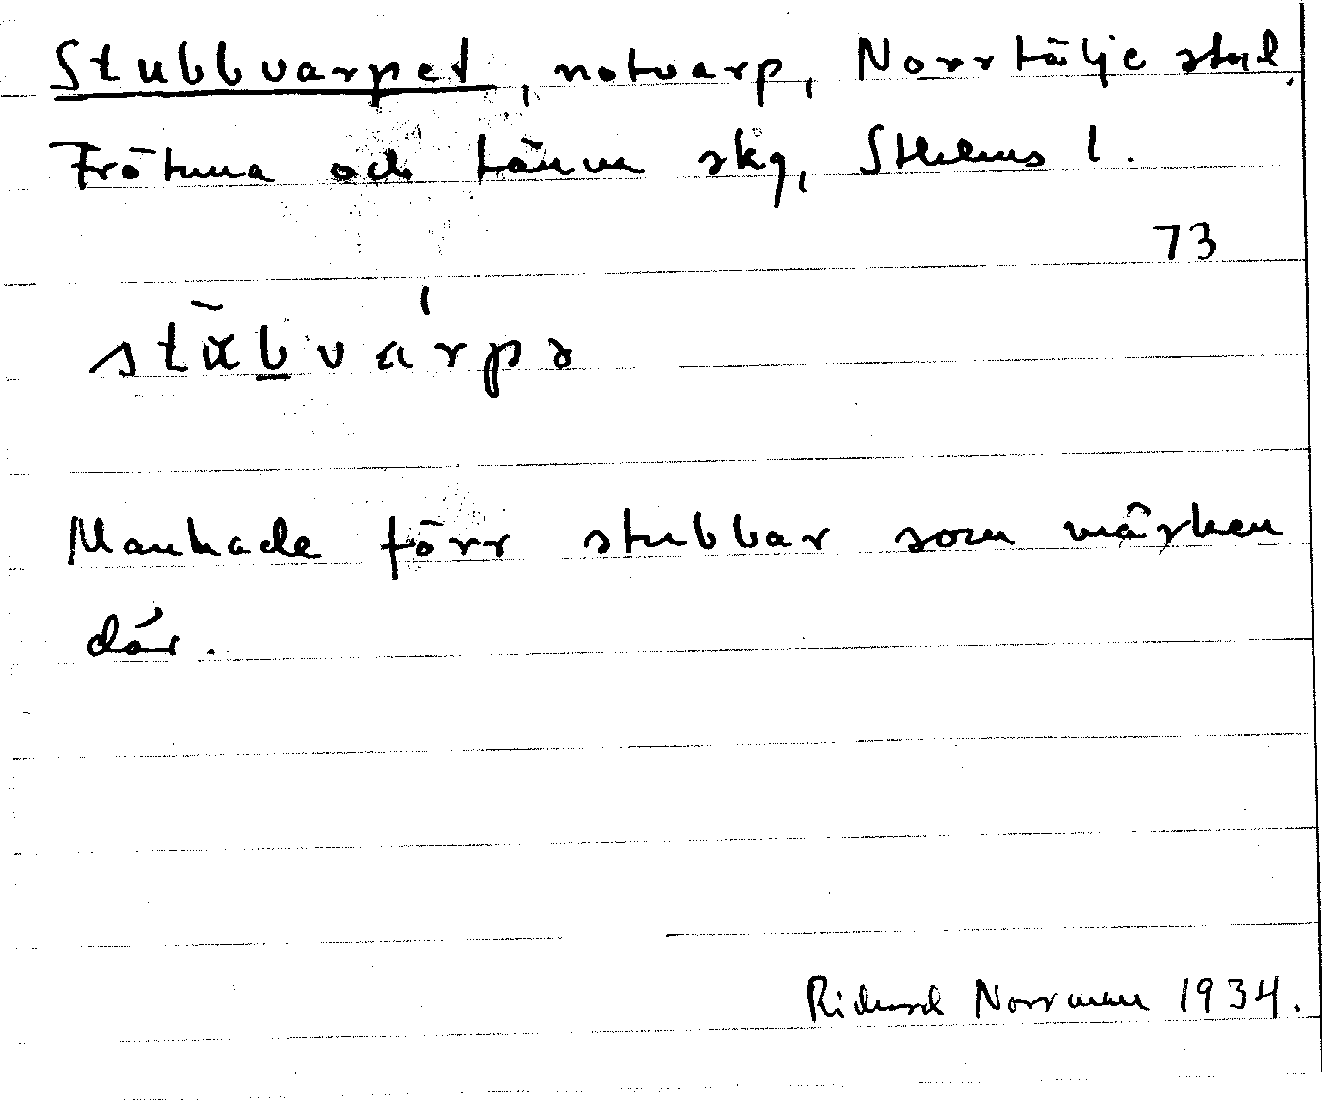 Stubbvarpet, notvarp, Norrtälje stad.
Frötuna och Länna skg, Sthlms l.
73
Man hade förr stubbar som märken
där.
Richard Norrman 1934.